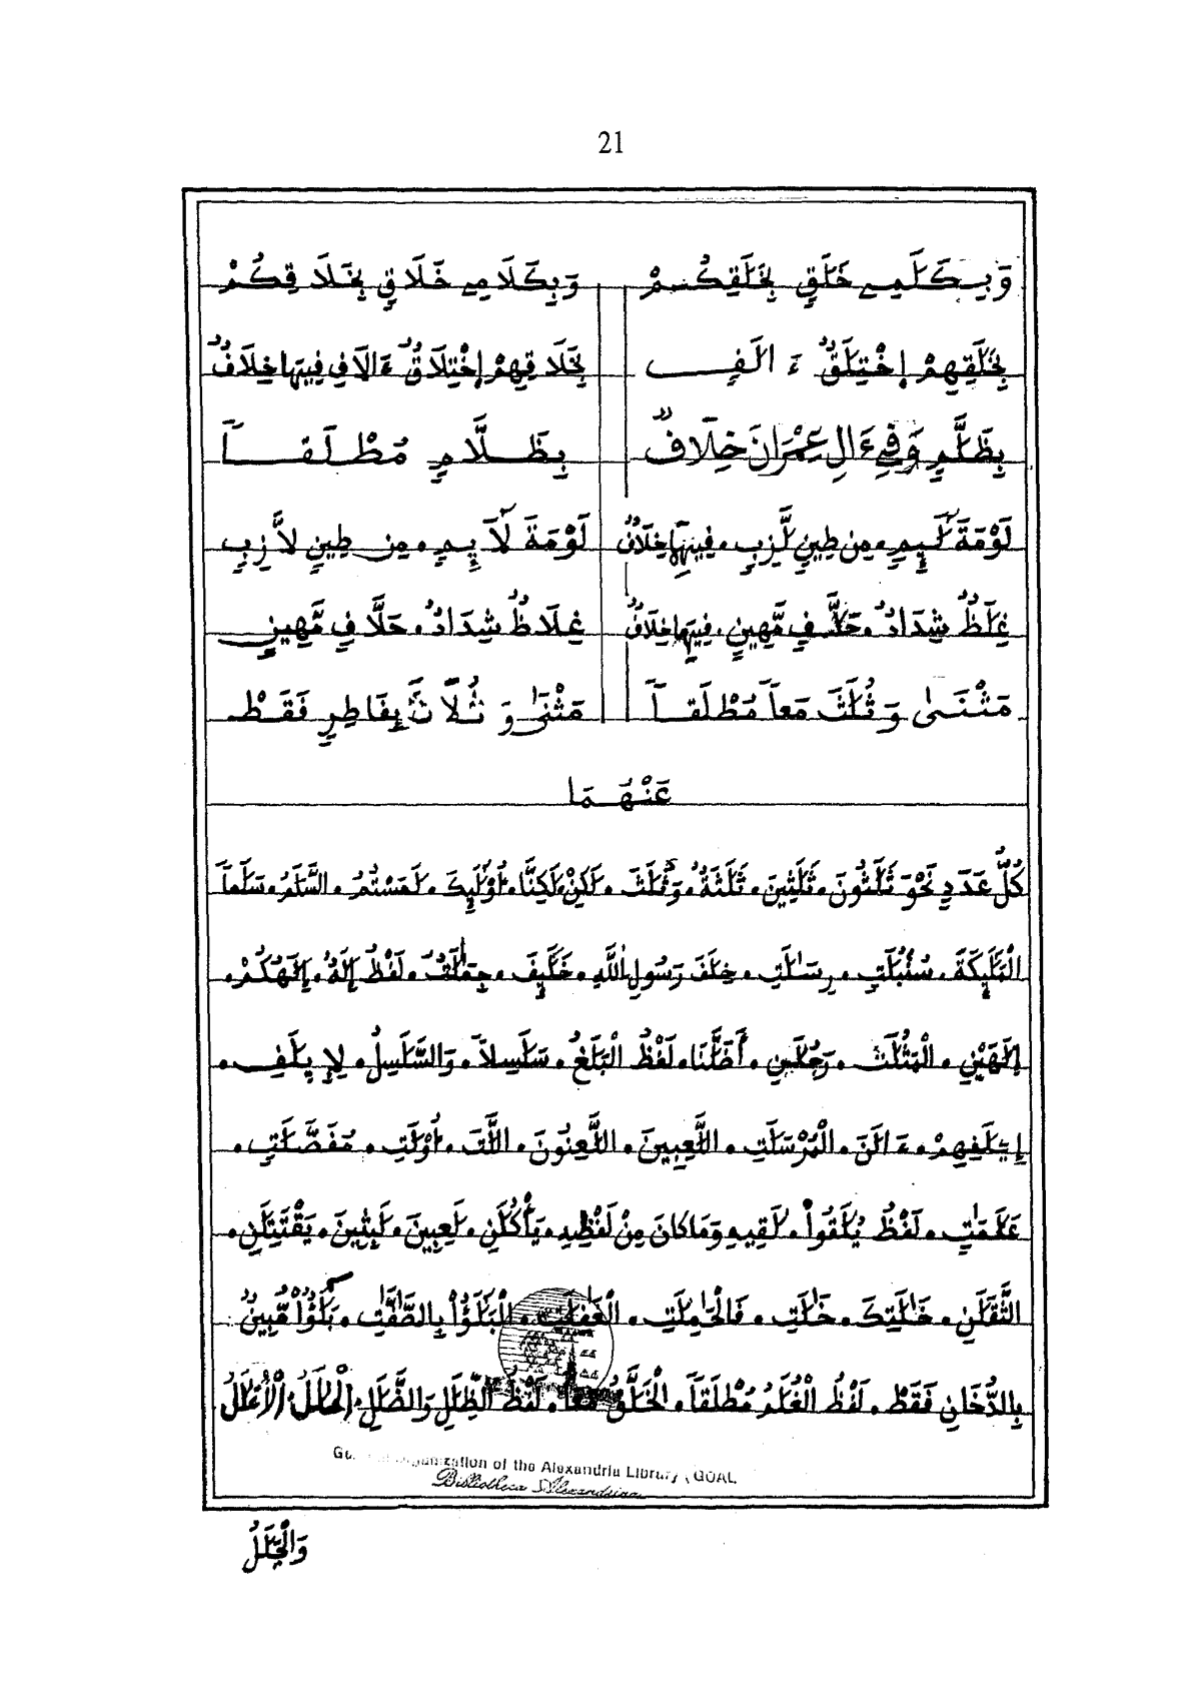 21
وَبِكَلَمِے خَلَقٍ بِخَلَقِكُمْ وَبِكَلَامِے خَلَاقٍ بِخَلَاقِكُمْ
بِخَلَقِهِمْ إِخْتِلَقٌ ءَالَفٍ بِخَلَاقِهِمْ إِخْتِلَاقٌ ءَالَافٍ فِيهَا خِلَافٌ
بِظَلَّمٍ وَفِے ءَالِ عِمْرَانَ خِلَافٌ بِظَلَّامٍ مُطْلَقاً
لَوْمَةَ لَآئِمٍ • مِن طِينٍ لَّزِبٍ • فِيهَا خِلَافٌ لَوْمَةَ لَآئِمٍ • مِن طِينٍ لَّازِبٍ
غِلَظٌ شِدَادٌ • حَلَّفٍ مَّهِينٍ • فِيهَا خِلَافٌ غِلَاظٌ شِدَادٌ • حَلَّافٍ مَّهِينٍ
مَثْنَىٰ وَثُلَثَ مَعاً مُطْلَقاً مَثْنَىٰ وَثُلَاثَ بِفَاطِرٍ فَقَطْ
عَنْهُمَا
كُلُّ عَدَدٍ نَحْوَ ثَلَثُونَ • ثَلَثِينَ • ثَلَثَةٌ • وَثُلَثَ • لَكِنْ • لَكِنَّا • أُوْلَئِكَ • لَمَسْتُمُ • السَّلَمُ • سَلَماً
الْمَلَئِكَةَ • سُنْبُلَتٍ • رِسَلَتِ • خِلَفَ رَسُولِ اللَّهِ • خَلَئِفَ • جِمَلَتٌ • لَفْظُ إِلَهٌ • إِلَهُكُمْ •
إِلَهَيْنِ • الْمَثُلَتُ • رَجُلَنِ • أَضَلَّنَا • لَفْظُ الْبَلَغُ • سَلَسِلاً • وَالسَّلَسِلُ • لِإِيلَفِ •
إِۦلَفِهِمْ • ءَالَنَ • الْمُرْسَلَتِ • اللَّعِبِينَ • اللَّعِنُونَ • اللَّتَ • أُوْلَتِ • مُفَصَّلَتٍ •
عَلَمَتٍ • لَفْظُ يُلَقُواْ • لَقِيهِ وَمَا كَانَ مِنْ لَفْظِهِ • يَأْكُلَنِ • لَعِبِينَ • لَبِثِينَ • يَقْتَتِلَنِ •
الثَّقَلَنِ • خَلَتِكَ • خَلَتِ • فَالْحَمِلَتِ • الْغَفِلَتِ • الْبَلَؤُاْ بِالصَّفَّتِ • بَلَؤٌاْ مُّبِينٌ
بِالدُّخَانِ فَقَطْ • لَفْظُ الْغُلَمُ مُطْلَقاً • الْخَلَّقُ مَعاً • لَفْظُ الظِّلَلِ وَالضَّلَلِ • الْحَلَلُ • الْأَغْلَلُ
Organization of the Alexandria Library (GOAL
Bibliotheca Alexandrina